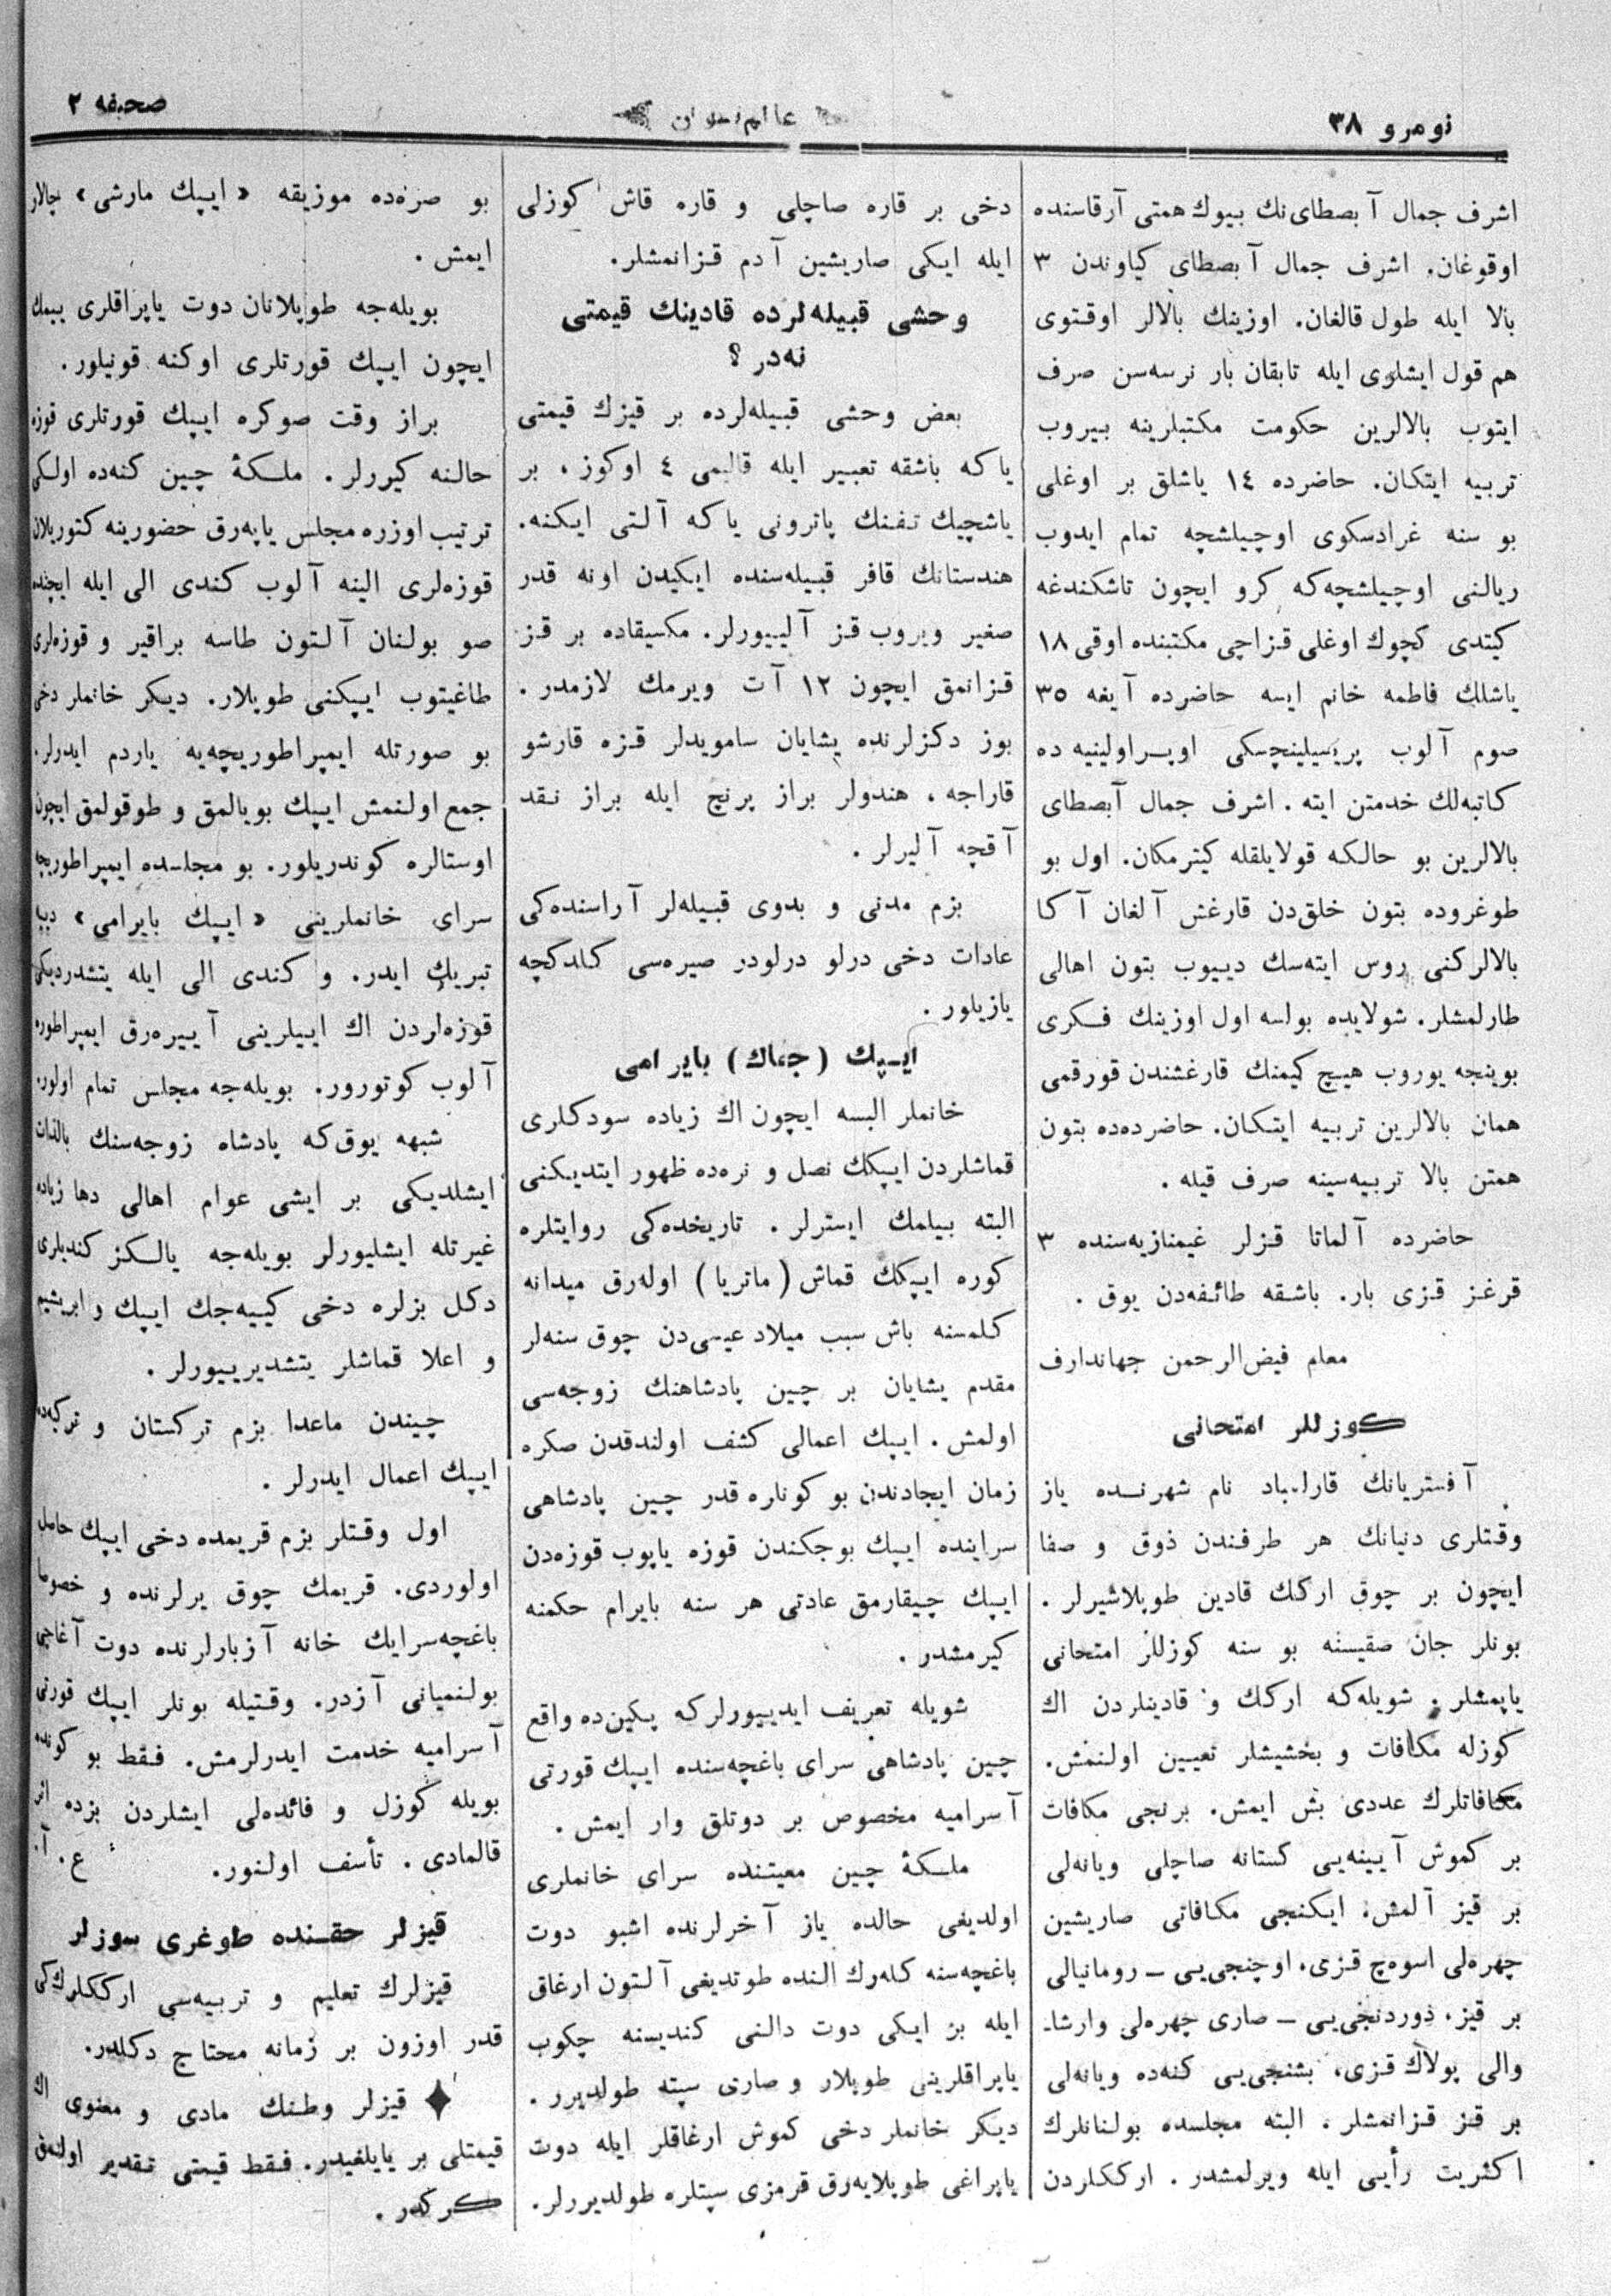 نومرو ٣٨
عالم نسوان
صحيفه ٢
اشرف جمال آبصطاى‌نك بيوك همتى آرقاسنده
اوقوغان. اشرف جمال آبصطاى كياوندن ٣
بالا ايله طول قالغان. اوزينك بالالر اوقتوى
هم قول ايشلوى ايله تابقان بار نرسه‌سن صرف
ايتوب بالالرين حكومت مكتبلرينه بيروب
تربيه ايتكان. حاضرده ١٤ ياشلق بر اوغلى
بو سنه غرادسكوى اوچيلشچه تمام ايدوب
ريالنى اوچيلشچه‌كه كرو ايچون تاشكندغه
كيتدى كچوك اوغلى قزاچى مكتبنده اوقى ١٨
ياشلك فاطمه خانم ايسه حاضرده آيغه ٣٥
صوم آلوب پريسيلينچسكى اوپراولينيه ده
كاتبه‌لك خدمتن ايته. اشرف جمال آبصطاى
بالالرين بو حالكه قولايلقله كيترمكان. اول بو
طوغروده بتون خلق‌دن قارغش آلغان آكا
بالالركنى روس ايته‌سك دييوب بتون اهالى
طارلمشلر. شولايده بولسه اول اوزينك فكرى
بوينچه يوروب هيچ كيمنك قارغشندن قورقمى
همان بالالرين تربيه ايتكان. حاضرده‌ده بتون
همتن بالا تربيه‌سينه صرف قيله.
حاضرده آلماتا قزلر غيمنازيه‌سنده ٣
قرغز قزى بار. باشقه طائفه‌دن يوق.
معلم فيض‌الرحمن جهاندارف
كوزللر امتحانى
آفستريانك قارلسباد نام شهرنده ياز
وقتلرى دنيانك هر طرفندن ذوق و صفا
ايچون بر چوق اركك قادين طوپلاشيرلر.
بونلر جان صقيسنه بو سنه كوزللر امتحانى
ياپمشلر. شويله‌كه اركك و قادينلردن اك
كوزله مكافات و بخشيشلر تعيين اولنمش.
مكافاتلرك عددى بش ايمش. برنجى مكافات
بر كموش آيينه‌يى كستانه صاچلى ويانه‌لى
بر قيز آلمش. ايكنجى مكافاتى صاريشين
چهره‌لى اسوه‌چ قزى. اوچنجى‌يى — رومانيالى
بر قيز. دوردنجى‌يى — صارى چهره‌لى وارشا-
والى پولاك قزى، بشنجى‌يى كنه‌ده ويانه‌لى
بر قز قزانمشلر. البته مجلسده بولنانلرك
اكثريت رأيى ايله ويرلمشدر. ارككلردن
دخى بر قاره صاچلى و قاره قاش كوزلى
ايله ايكى صاريشين آدم قزانمشلر.
وحشى قبيله‌لرده قادينك قيمتى
نه‌در؟
بعض وحشى قبيله‌لرده بر قيزك قيمتى
ياكه باشقه تعبير ايله قاليمى ٤ اوكوز، بر
ياشچيك تفنك پاترونى ياكه آلتى ايكنه.
هندستانك قافر قبيله‌سنده ايكيدن اونه قدر
صغير ويروب قز آلييورلر. مكسيقاده بر قز
قزانمق ايچون ١٢ آت ويرمك لازمدر.
بوز دكزلرنده يشايان سامويدلر قزه قارشو
قاراجه، هندولر براز پرنچ ايله براز نقد
آقچه آليرلر.
بزم مدنى و بدوى قبيله‌لر آراسنده‌كى
عادات دخى درلو درلودر صيره‌سى كلدكچه
يازيلور.
ايپك (جفاك) بايرامى
خانملر البسه ايچون اك زياده سودكلرى
قماشلردن ايپكك نصل و نره‌ده ظهور ايتديكنى
البته بيلمك ايسترلر. تاريخده‌كى روايتلره
كوره ايپكك قماش (ماتريا) اوله‌رق ميدانه
كلمسنه باش سبب ميلاد عيسى‌دن چوق سنه‌لر
مقدم يشايان بر چين پادشاهنك زوجه‌سى
اولمش. ايپك اعمالى كشف اولندقدن صكره
زمان ايجادندن بو كوناره قدر چين پادشاهى
سراينده ايپك بوجكندن قوزه ياپوب قوزه‌دن
ايپك چيقارمق عادتى هر سنه بايرام حكمنه
كيرمشدر.
شويله تعريف ايدييورلركه پكين‌ده واقع
چين پادشاهى سراى باغچه‌سنده ايپك قورتى
آسراميه مخصوص بر دوتلق وار ايمش.
ملكۀ چين معيتنده سراى خانملرى
اولديغى حالده ياز آخرلرنده اشبو دوت
باغچه‌سنه كله‌رك النده طوتديغى آلتون ارغاق
ايله بر ايكى دوت دالنى كنديسنه چكوب
ياپراقلرينى طوپلار و صارى سپته طولديرر.
ديكر خانملر دخى كموش ارغاقلر ايله دوت
ياپراغى طوپلايه‌رق قرمزى سپتلره طولديررلر.
بو صره‌ده موزيقه «ايپك مارشى» چالار
ايمش.
بويله‌جه طوپلانان دوت ياپراقلرى ييمك
ايچون ايپك قورتلرى اوكنه قونيلور.
براز وقت صوكره ايپك قورتلرى قوزه
حالنه كيررلر. ملكۀ چين كنه‌ده اولكى
ترتيب اوزره مجلس ياپه‌رق حضورينه كتوريلان
قوزه‌لرى الينه آلوب كندى الى ايله ايچنده
صو بولنان آلتون طاسه براقير و قوزه‌لرى
طاغيتوب ايپكنى طوپلار. ديكر خانملر دخى
بو صورتله ايمپراطوريچه‌يه ياردم ايدرلر.
جمع اولنمش ايپك بويالمق و طوقولمق ايچون
اوستالره كوندريلور. بو مجلسده ايمپراطوريچه
سراى خانملرينى «ايپك بايرامى» دييه
تبريك ايدر. و كندى الى ايله يتشدرديكى
قوزه‌لردن اك اييلرينى آييره‌رق ايمپراطوره
آلوب كوتورور. بويله‌جه مجلس تمام اولور.
شبهه يوق‌كه پادشاه زوجه‌سنك بالذات
ايشلديكى بر ايشى عوام اهالى دها زياده
غيرتله ايشليورلر بويله‌جه يالكز كنديلرى
دكل بزلره دخى كييه‌جك ايپك و ابريشيم
و اعلا قماشلر يتشديرييورلر.
چيندن ماعدا بزم تركستان و تركيه‌ده
ايپك اعمال ايدرلر.
اول وقتلر بزم قريمده دخى ايپك حاصل
اولوردى. قريمك چوق يرلرنده و خصوصا
باغچه‌سرايك خانه آزبارلرنده دوت آغاجى
بولنميانى آزدر. وقتيله بونلر ايپك قورتى
آسراميه خدمت ايدرلرمش. فقط بو كونده
بويله كوزل و فائده‌لى ايشلردن بزده اثر
قالمادى. تأسف اولنور. ع. آ.
قيزلر حقنده طوغرى سوزلر
قيزلرك تعليم و تربيه‌سى ارككلرك‌كى
قدر اوزون بر زمانه محتاج دكلدر.
✦ قيزلر وطنك مادى و معنوى اك
قيمتلى بر يايلغيدر. فقط قيمتى تقدير اولنمق
كركدر.